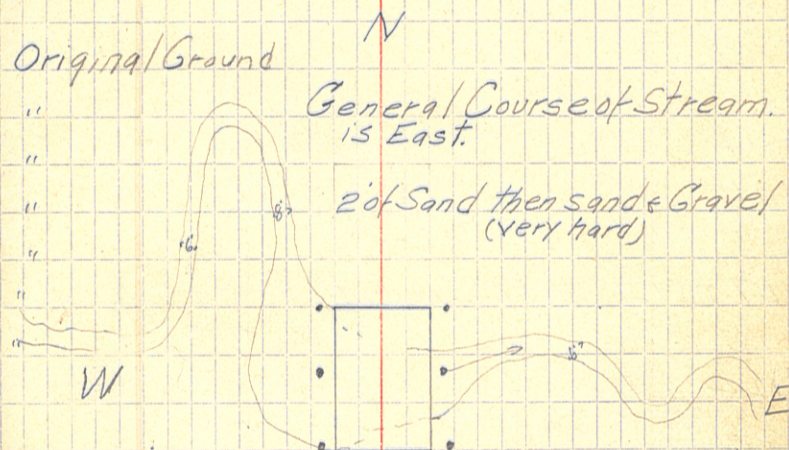 N
Original Ground
"
General Course of Stream.
is East.
"
"
2' of Sand then sand & Gravel
(very hard)
8'
6'
"
"
"
W
E